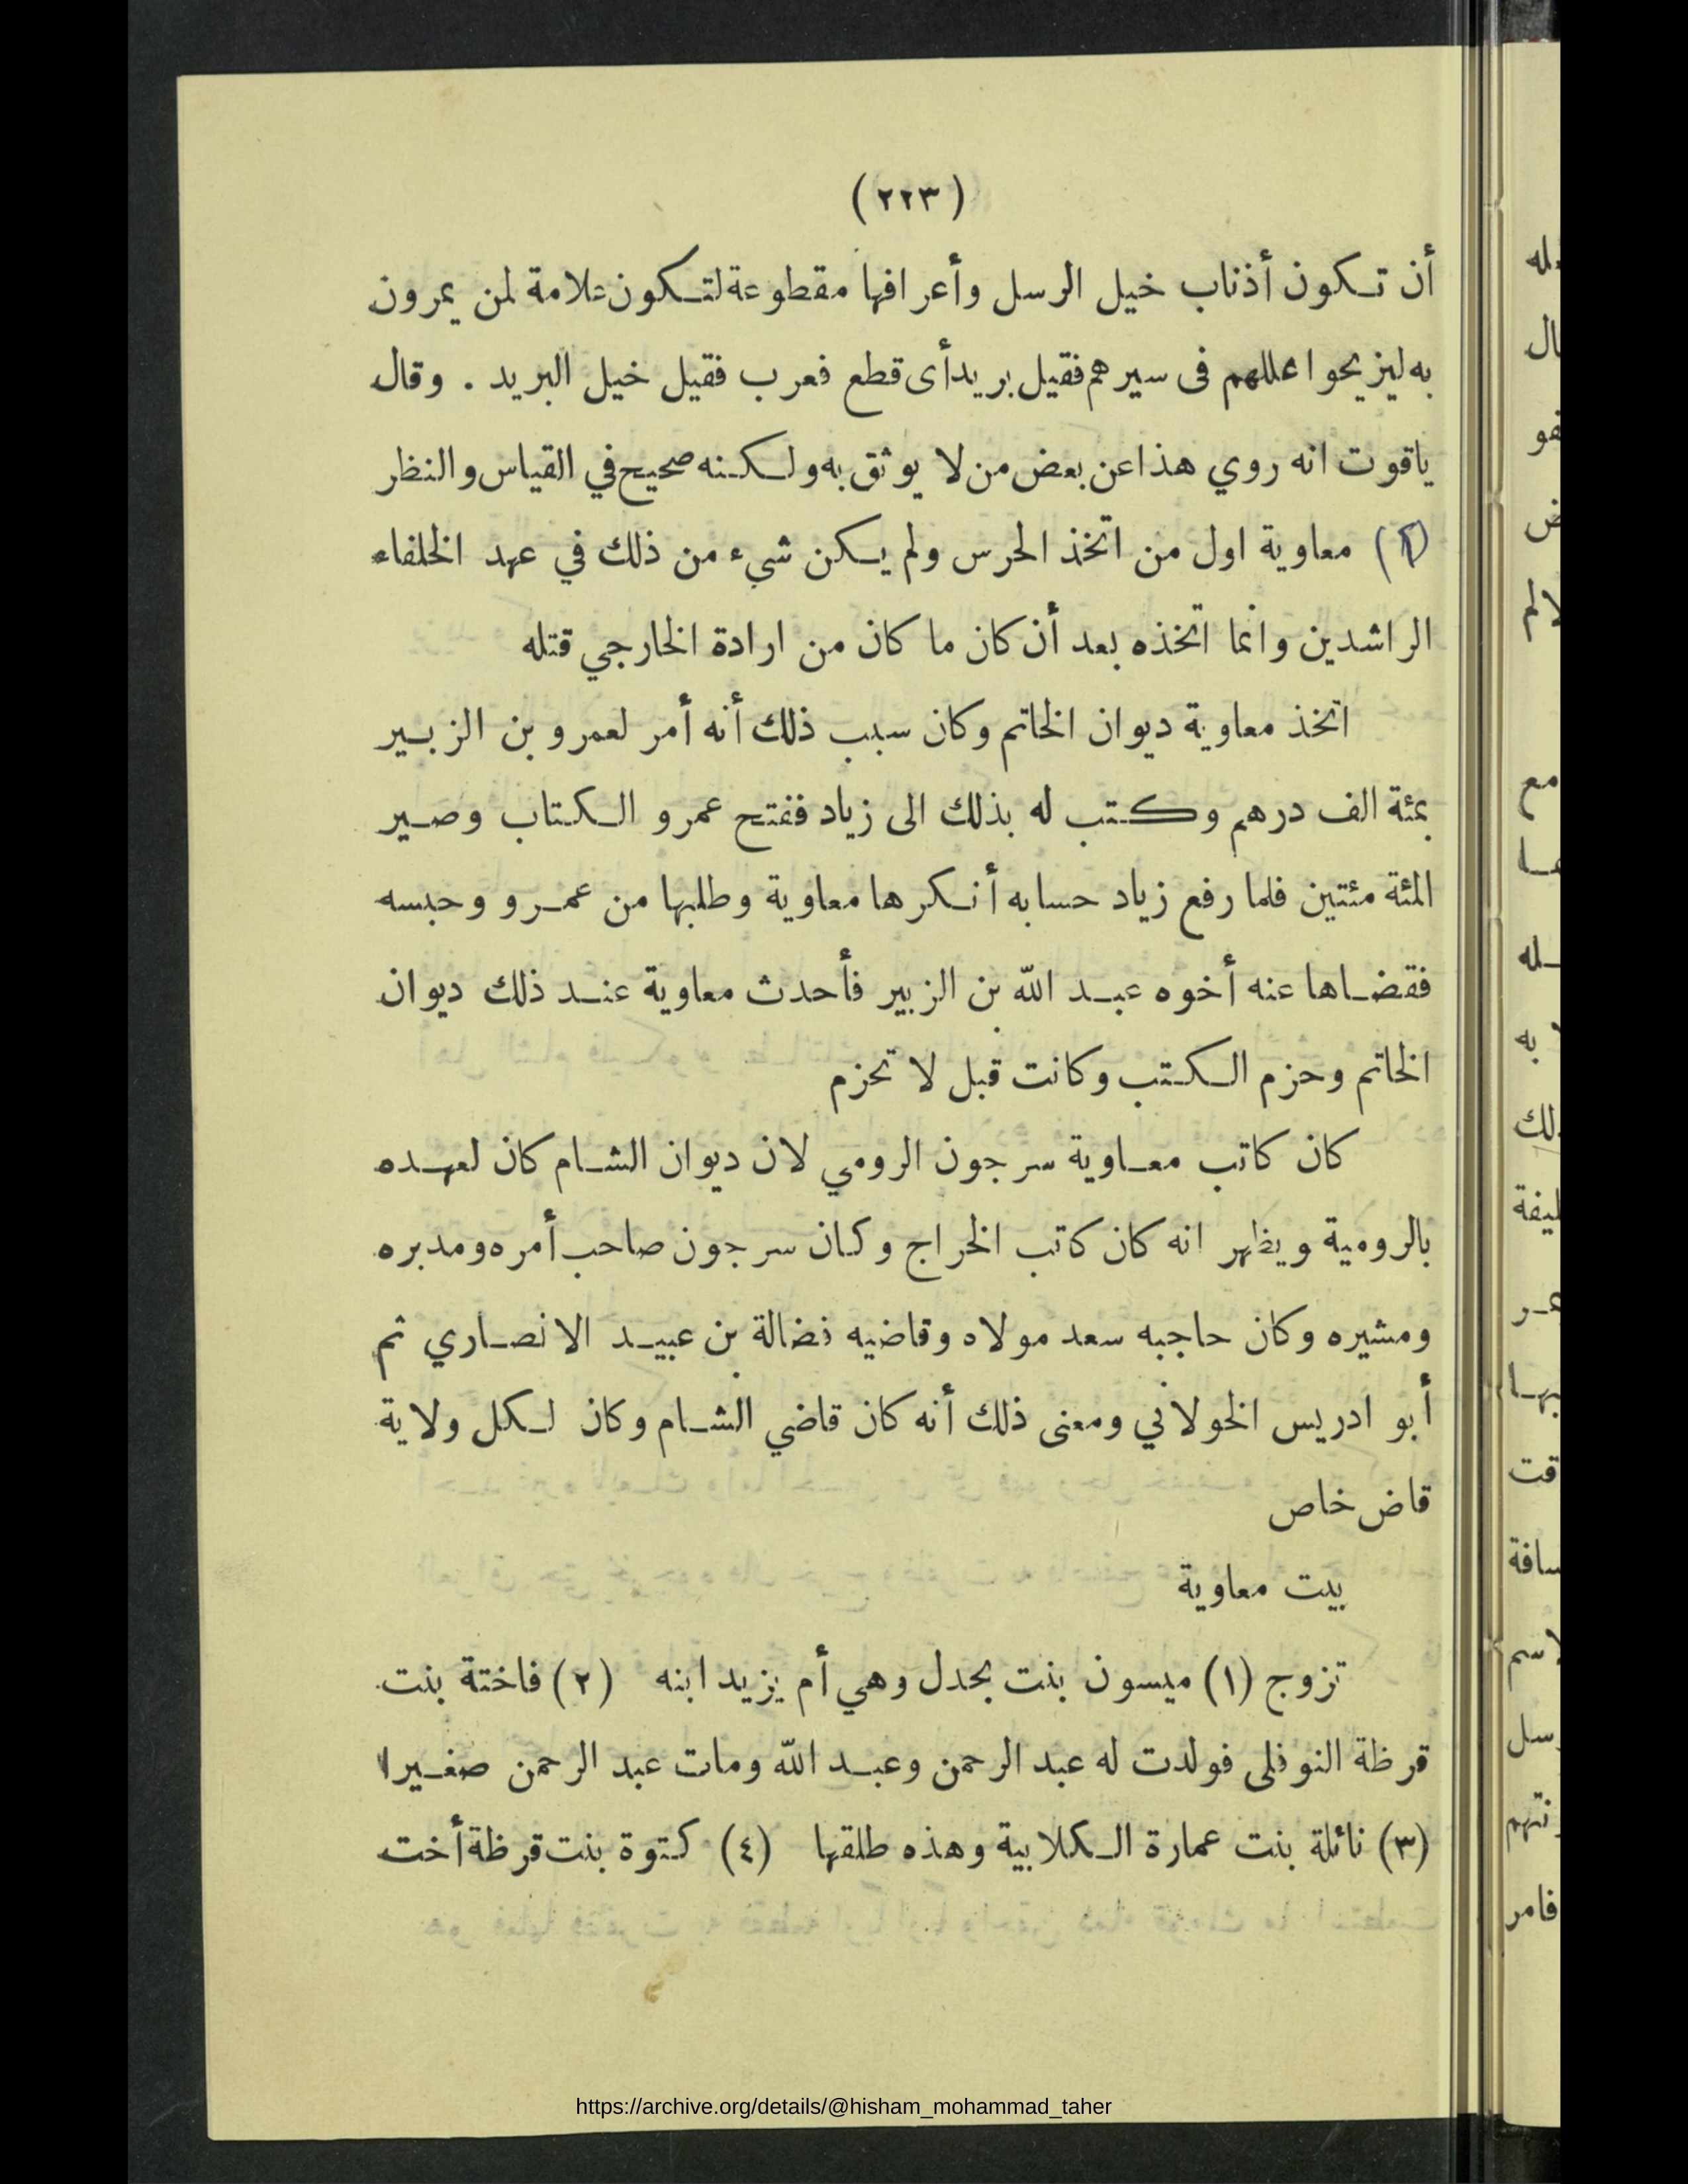 (٢٢٣)
أن تكون أذناب خيل الرسل وأعرافها مقطوعة لتكون علامة لمن يمرون
به ليزيحوا عللهم فى سيرهم فقيل بريد أى قطع فعرب فقيل خيل البريد . وقال
ياقوت انه روي هذا عن بعض من لا يوثق به ولكنه صحيح في القياس والنظر
(٢) معاوية اول من اتخذ الحرس ولم يكن شيء من ذلك في عهد الخلفاء
الراشدين وانما اتخذه بعد أن كان ما كان من ارادة الخارجي قتله
اتخذ معاوية ديوان الخاتم وكان سبب ذلك أنه أمر لعمرو بن الزبير
بمئة الف درهم وكتب له بذلك الى زياد ففتح عمرو الكتاب وصير
المئة مئتين فلما رفع زياد حسابه أنكرها معاوية وطلبها من عمرو وحبسه
فقضاها عنه أخوه عبد الله بن الزبير فأحدث معاوية عند ذلك ديوان
الخاتم وحزم الكتب وكانت قبل لا تحزم
كان كاتب معاوية سرجون الرومي لان ديوان الشام كان لعهده
بالرومية ويظهر انه كان كاتب الخراج وكان سرجون صاحب أمره ومدبره
ومشيره وكان حاجبه سعد مولاه وقاضيه فضالة بن عبيد الانصاري ثم
أبو ادريس الخولاني ومعنى ذلك أنه كان قاضي الشام وكان لكل ولاية
قاض خاص
بيت معاوية
تزوج (١) ميسون بنت بحدل وهي أم يزيد ابنه (٢) فاختة بنت
قرظة النوفلى فولدت له عبد الرحمن وعبد الله ومات عبد الرحمن صغيرا
(٣) نائلة بنت عمارة الكلابية وهذه طلقها (٤) كتوة بنت قرظة أخت
https://archive.org/details/@hisham_mohammad_taher